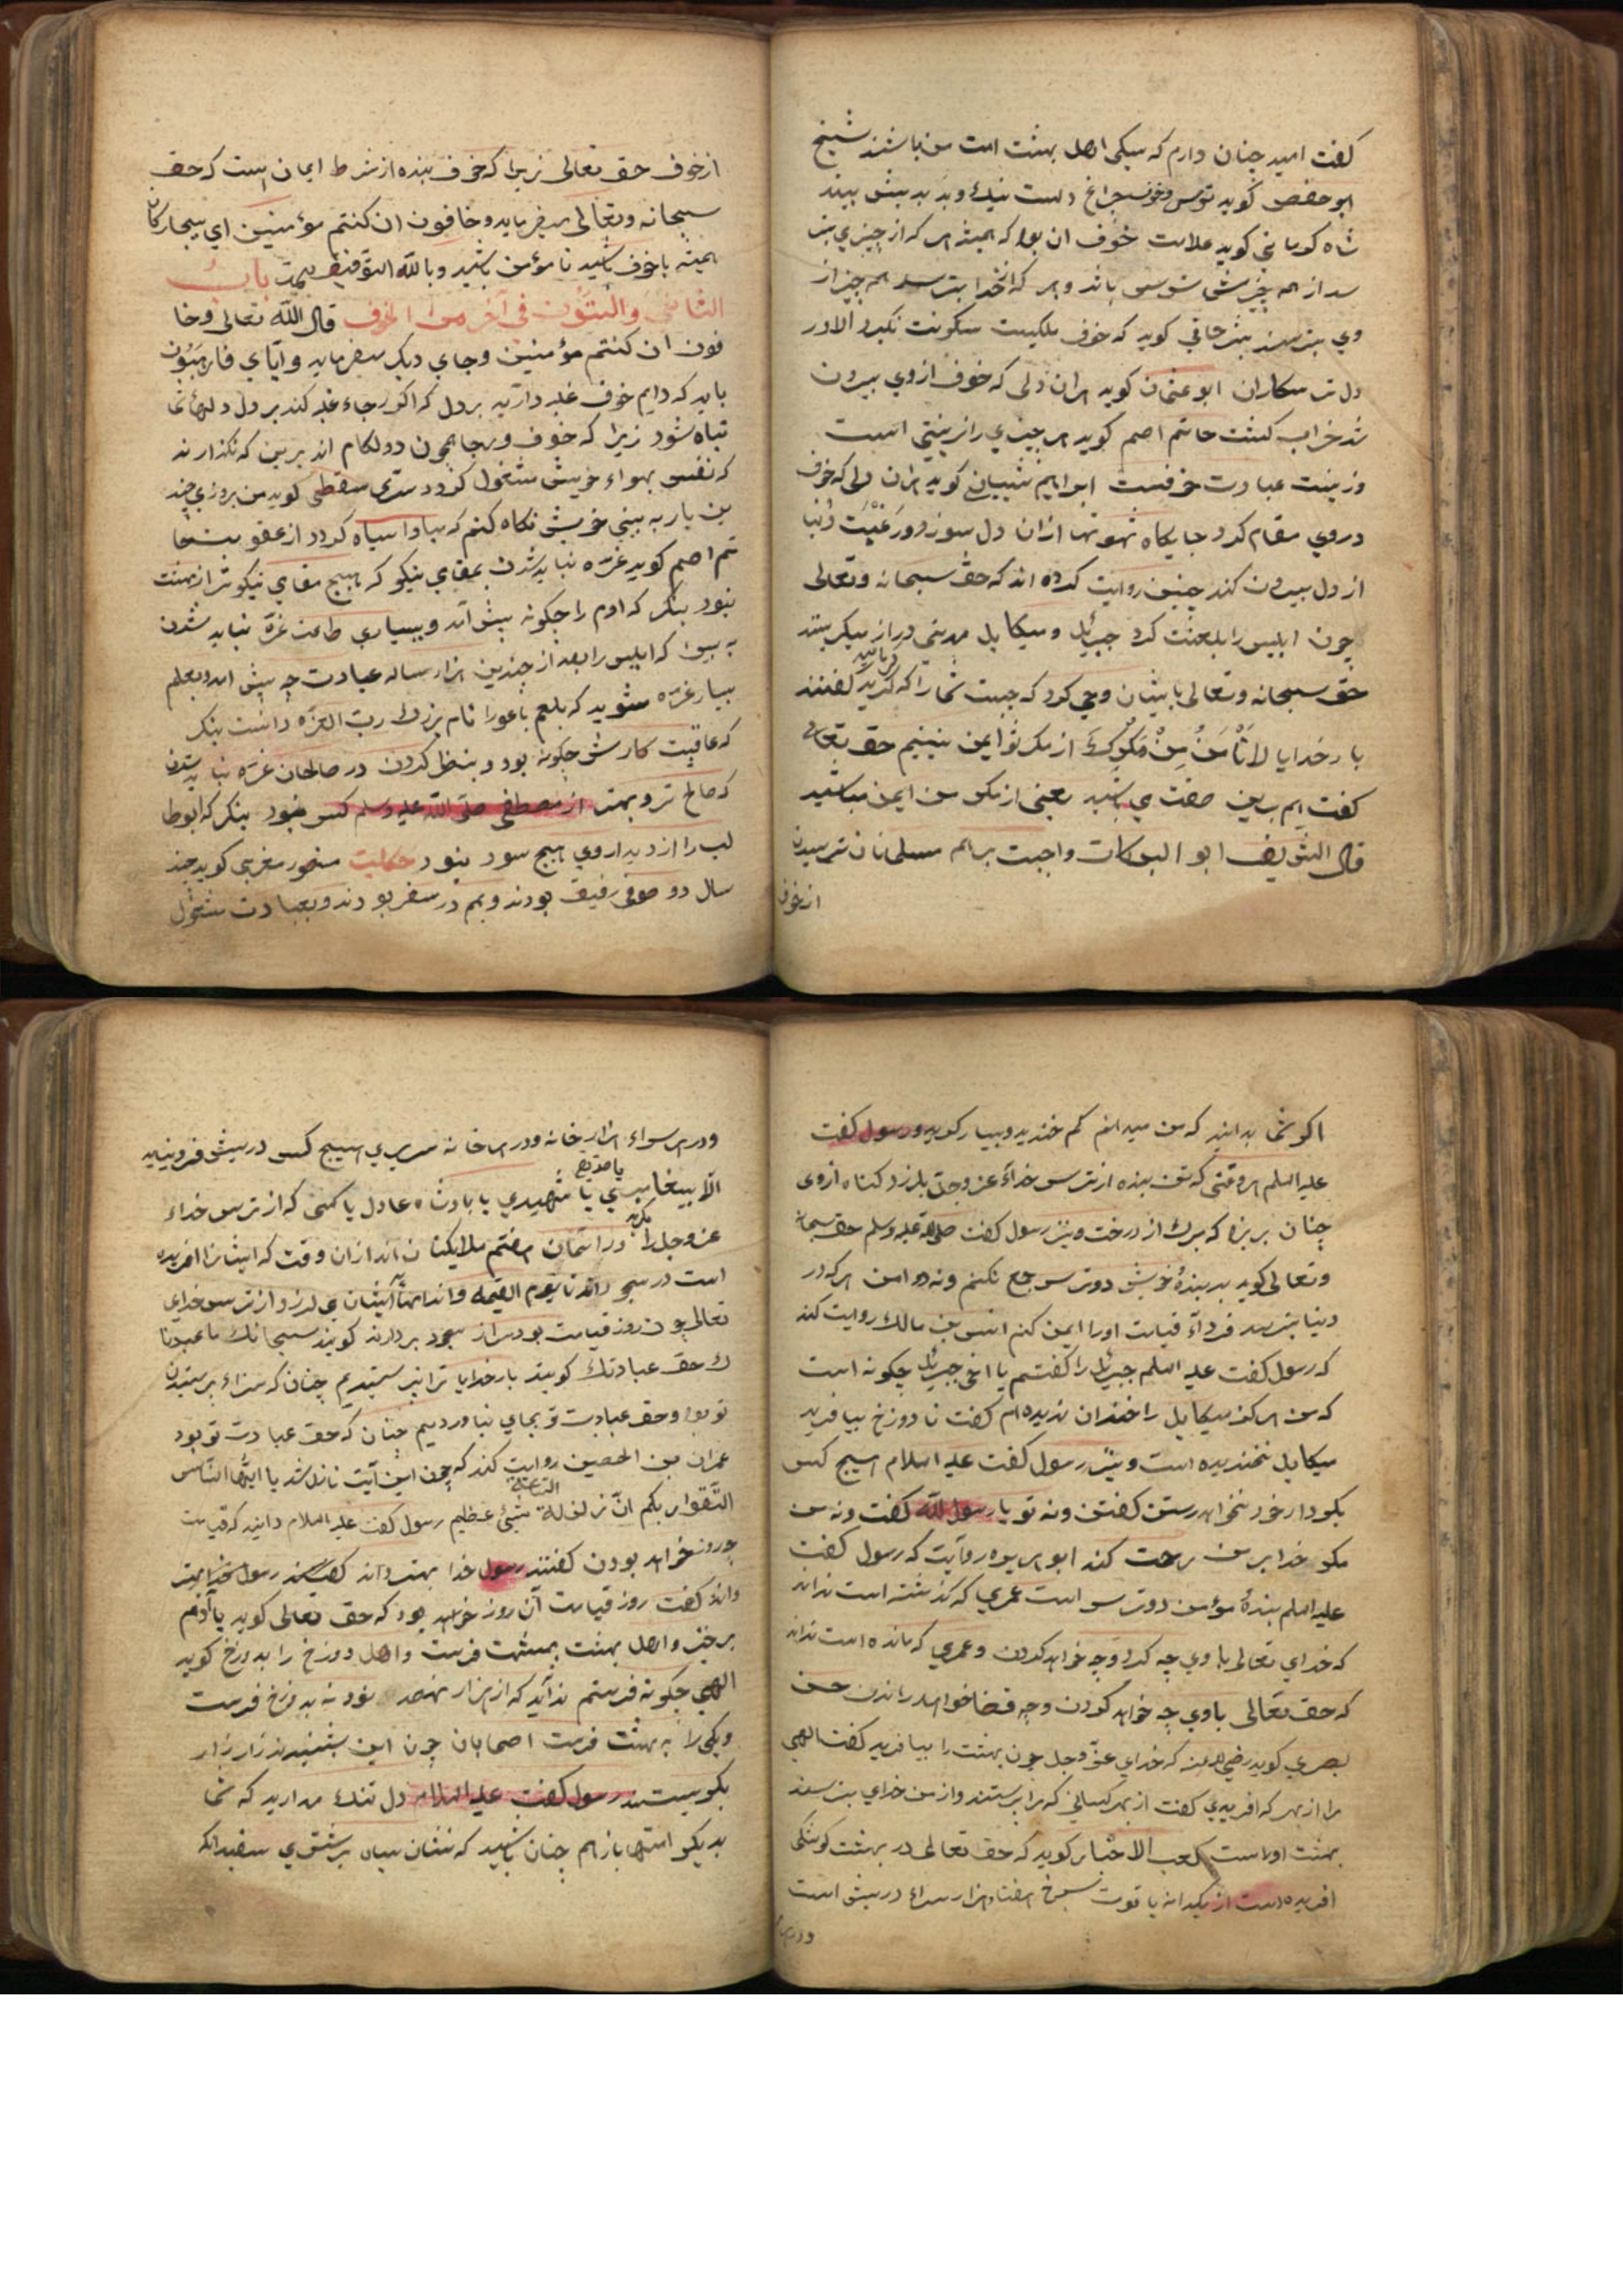 کفت امید چنان دارم که سیکی اهل بهشت است من باشند شیخ
ابو حفص کوید ترس وخوف چراغ دلست نیک وبد بدیش بیند
شاه کرمانی کوید علامت خوف ان بود که همیشه هر که از چیزي بتر
سد از همه چیزش ترس باشد وهر که از خدا بترسد همه چیز از
وي بترسند بشر حافي کوید که خوف ملکیست سکونت نکیرد الا در
دل ترسکاران ابو عثمان کوید هران دلی که خوف ازوي بیرون
شد خراب کشت حاتم اصم کوید هر چیزي را زینتي است
وزینت عبادت خوفست ابراهیم شیبانی کوید هران دلی که خوف
دروي مقام کرد جایکاه شهوتها ازان دل سوزد ورغبت دنیا
از دل بیرون کند چنین روایت کرده اند که حق سبحانه وتعالی
چون ابلیس را بلعنت کرد جبرئیل ومیکاییل مدتی دراز میکریستند
حق سبحانه وتعالی بایشان وحي کرد که چیست شمارا که کریه کفتند
بار خدایا لا نأمن من مکرک از مکر تو ایمن نیییم حق تعالی
کفت هم برین صفت مي باشید یعنی از مکر من ایمن مباشید
قال الشریف ابو البرکات واجبت بر همه مسلمانان ترسیدن
از خوف
از خوف حق تعالی زیرا که خوف بنده از شرط ایمان است که حق
سبحانه وتعالی میفرماید وخافون ان کنتم مؤمنین اي بیچارکان
همیشه باخوف باشید تا مؤمن باشید وبالله التوفیق باب
الثاني والستون في آخر من الخوف قال الله تعالی وخا
فون ان کنتم مؤمنین وجاي دیکر میفرماید وایاي فارهبون
باید که دایم خوف غلبه دارد بر دل که اکر رجاء غلبه کند بر دل دلهاتان
تباه شود زیرا که خوف ورجا همچون دو لکام اند برین که نکذارند
که نفس بهواء خویش مشغول کردد سري سقطي کوید من بروزي چند
ین بار به بیني خویش نکاه کنم که مبادا سیاه کردد از عقوبت حا
تم اصم کوید غره نباید شدن بمقاي نیکو که هیچ مقاي نیکوتر از بهشت
نبود بنکر که ادم را چکونه پیش آمد وبسیاري طاعت غره نباید شدن
به بین که ابلیس را بعد از چندین هزار ساله عبادت چه پیش امد وبعلم
بسیار غره مشوید که بلعم باعورا نام بزرک رب العزه دانست بنکر
که عاقبت کارش چکونه بود وبنظر کردن در صالحان غره نباید شدن
که صالح تر وبهتر از مصطفی صلی الله علیه وسلم کس نبود بنکر که ابوطا
لب را از دیدار وي هیچ سود نبود حکایت منصور مغربي کوید چند
سال دو صوفي رفیق بودند وهم در سفر بودند وبعبادت مشغول
اکر شما بدانید که من میدانم کم خندید وبسیار کریید ورسول کفت
علیه السلم هر وقتي که تن بنده از ترس خداء عز وجل بلرزد کناه ازوی
چنان بریزد که برک از درخت ونیز رسول کفت صلی الله علیه وسلم حق سبحانه
وتعالی کوید بر بندۀ خویش دو ترس جمع نکنم ونه دو امن هر که در
دنیا بترسد فرداء قیامت اورا ایمن کنم انس بن مالک روایت کند
که رسول کفت علیه السلم جبرئیل را کفتم یا اخي جبرئیل چکونه است
که من هرکز میکاییل را خندان ندیده ام کفت تا دوزخ بیافرید
میکاییل نخندیده است ونیز رسول کفت علیه السلام هیچ کس
بکردار خود نخواهد رستن کفتن ونه تو یا رسول الله کفت ونه من
مکر خدا بر من رحمت کند ابو هریره روایت که رسول کفت
علیه السلم بندۀ مؤمن دو ترس است عمري که کذشته است نداند
که خداي تعالی با وي چه کرد وچه خواهد کردن وعمري که مانده است نداند
که حق تعالی باوي چه خواهد کردن وچه قضا خواهد راندن حسن
بصري کوید رضي الله عنه که خداي عز وجل چون بهشت را بیافرید کفت الهي
مرا از بهر که افریدي کفت از بهر کسانی که مرا پرستند واز من خداي بترسند
بهشت اوراست کعب الاحبار کوید که حق تعالی در بهشت کوشکی
افریده است از یکدانه یاقوت سرخ هفتاد هزار سراء دریش است
ودر هر
ودر هر سراء هزار خانه ودر هر خانه سریري هیچ کس دریش فرو نیاید
الا پیغامبري یا صدیق یا شهیدي یا بادشاه عادل یا کسی که از ترس خداء
عز وجل را مکرید در اسمان هفتم ملایکتان اند ازان وقت که ایشانرا افریده
است در سجود اند تا یوم القیمه واندامهاء ایشان مي لرزد از ترس خداي
تعالی چون روز قیامت بود سر از سجود بردارند کویند سبحانک ما عبدنا
ک حق عبادتک کویند بار خدایا ترا نپرستیدیم چنان که سزاء پرستیدن
تو بود وحق عبادت تو بجاي نیاوردیم چنان که حق عبادت تو بود
عمران بن الحصین روایت کند که چون این آیت نازل شد یا ایها الناس
اتقوا ربکم ان زلزلة الساعة شيئ عظیم رسول کفت علیه السلام دانید که قیامت
چه روز خواهد بودن کفتند رسول خدا بهتر داند کفتند رسول خدا بهتر
داند کفت روز قیامت آن روز خواهد بود که حق تعالی کوید یا آدم
برخیز واهل بهشت ببهشت فرست واهل دوزخ را بدوزخ کوید
الهي چکونه فرستم ندآید که از هزار نهصد نود نه بدوزخ فرست
ویکی را به بهشت فرست اصحابان چون این بشنیدند زار زار
بکریستند رسول کفت علیه السلام دل تنک مدارید که شما
بدیکر امتها بازهم چنان باشید که نشان سیاه بر شتري سفید الکه